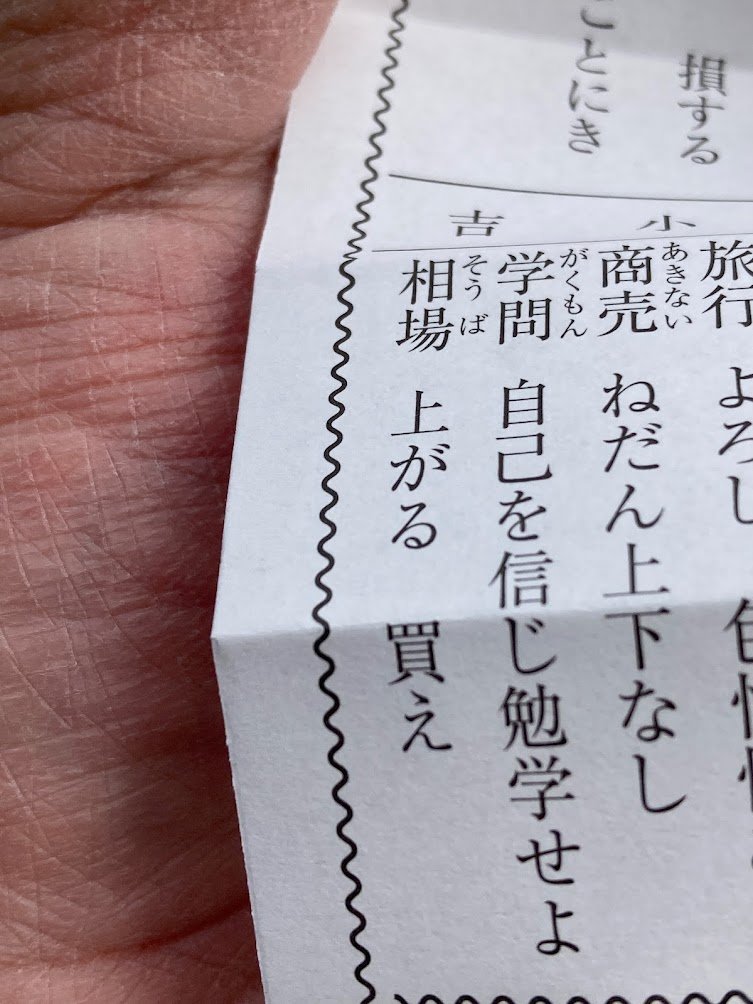 損する
ことにき
小吉
旅行 よろし
あきない
商売 ねだん上下なし
がくもん
学問 自己を信じ勉学せよ
そうば
相場 上がる 買え